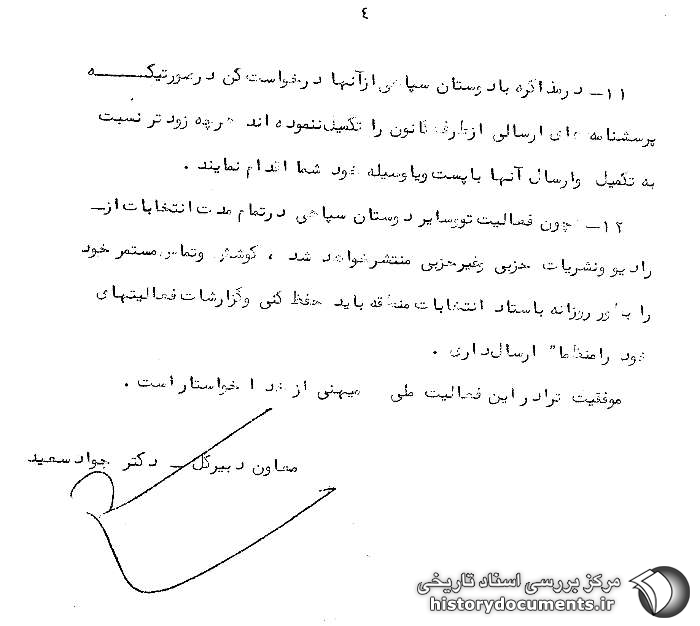 ٤
۱۱- در مذاکره با دوستان سپاهی از آنها درخواست کن در صورتیکه
پرسشنامه های ارسالی از طرف کانون را تکمیل ننموده اند هرچه زودتر نسبت
به تکمیل وارسال آنها با پست ویا وسیله خود شما اقدام نمایند .
۱۲- چون فعالیت تو وسایر دوستان سپاهی در تمام مدت انتخابات از
رادیو ونشریات حزبی وغیرحزبی منتشر خواهد شد ، کوشش وتماس مستمر خود
را بطور روزانه با ستاد انتخابات منطقه باید حفظ کنی وگزارشات فعالیتهای
خود را منظما" ارسال داری .
موفقیت ترا در این فعالیت ملی میهنی از خدا خواستار است .
معاون دبیرکل - دکتر جواد سعید
مرکز بررسی اسناد تاریخی
historydocuments.ir